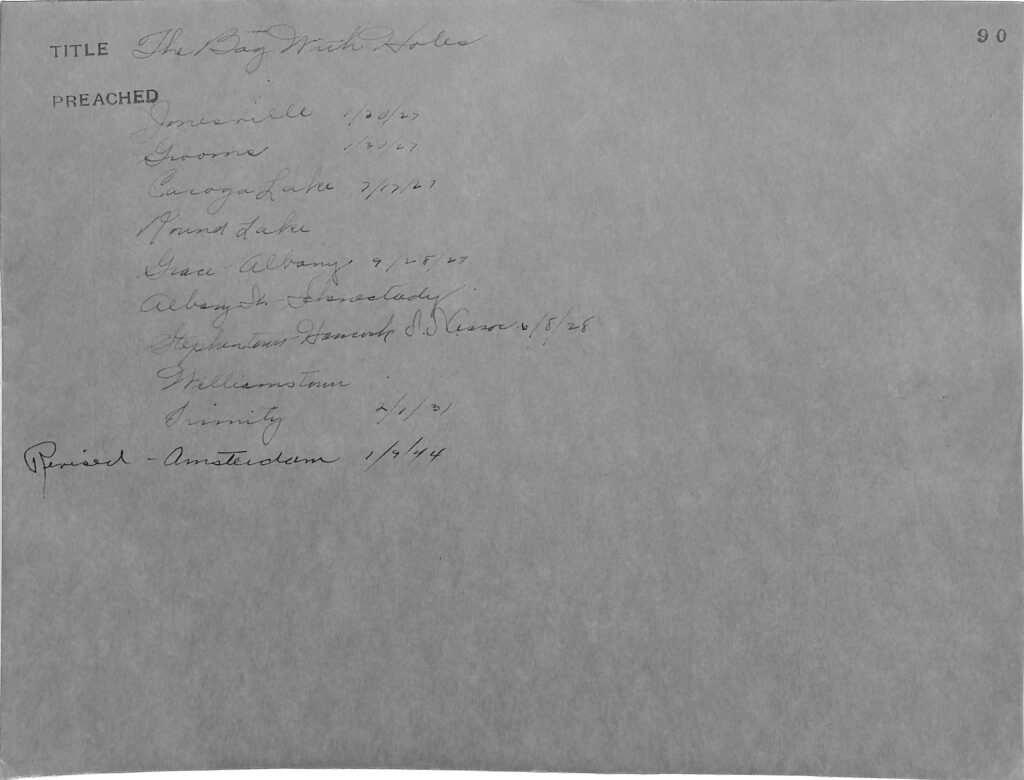 90
TITLE The Bag With Holes
PREACHED
Jonesville 1/30/27
Grooms 1/30/27
Caroga Lake 7/17/27
Round Lake
Grace - Albany 9/28/27
Albany St. - Schenectady
Stephentown Hancock S. 6/8/28
Williamstown
Trinity 2/1/31
Revised - Amsterdam 1/9/44